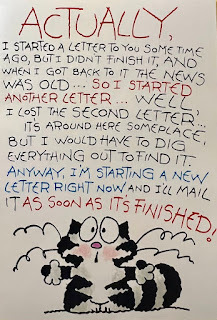 ACTUALLY,
I STARTED A LETTER TO YOU SOME TIME
AGO, BUT I DIDN'T FINISH IT, AND
WHEN I GOT BACK TO IT THE NEWS
WAS OLD... SO I STARTED
ANOTHER LETTER... WELL,
I LOST THE SECOND LETTER.
IT'S AROUND HERE SOMEPLACE,
BUT I WOULD HAVE TO DIG
EVERYTHING OUT TO FIND IT.
ANYWAY, I'M STARTING A NEW
LETTER RIGHT NOW AND I'LL MAIL
IT AS SOON AS IT'S FINISHED!